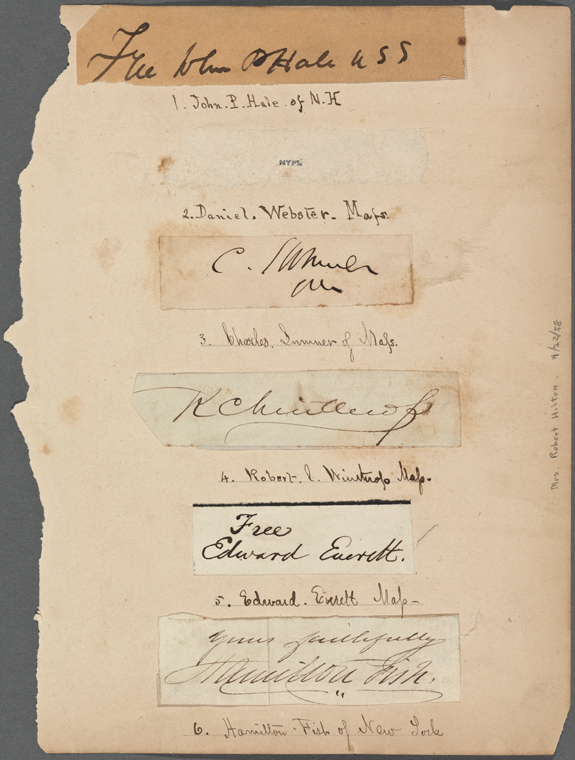 Free John P Hale USS
1. John. P. Hale of N.H
NYPL
2. Daniel. Webster. Maſs.
C. Sumner
3. Charles. Sumner of Maſs.
R C Winthrop
4. Robert. C. Winthrop Maſs.
Free
Edward Everett.
5. Edward. Everett Maſs-
yours faithfully
Hamilton Fish.
6. Hamilton Fish of New York
Mrs Robert Hilton. 9/22/58